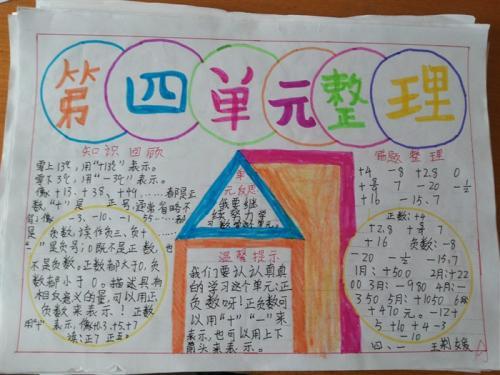 第四单元整理
知识回顾
零上13℃,用"+13℃"表示。
零下3℃,用"-3℃"表示。
像+15、+38、+49……都是正
数"+"是正号,通常省略不
写,像-3、-10、-1、55……都
是负数。读作负三、负十
"-"是负号;0既不是正数,也
不是负数。正数都大于0,负
数都小于0。描述具有
相反意义的量,可以用正
负数来表示!正数
用"+"表示,像+3、+5、+7
读:正7
单
元反思
我要继
续努力学
温馨提示
我们要认认真真
的学习这个单元:正
负数呀!正负数可
以用"+""-"来
表示,也可以用上下
箭头来表示。
错题整理
+4 -8 +2.8 0
7 -20
+16 -15、7
正数:+4
+2.8 7
+16 负数:-8
-20 -15.7
1月:+500 2月:+22
00 3月:-980 4月:-
350 5月:+1050 6月
+470元。-12+
5+10+4-3
-10
四、一